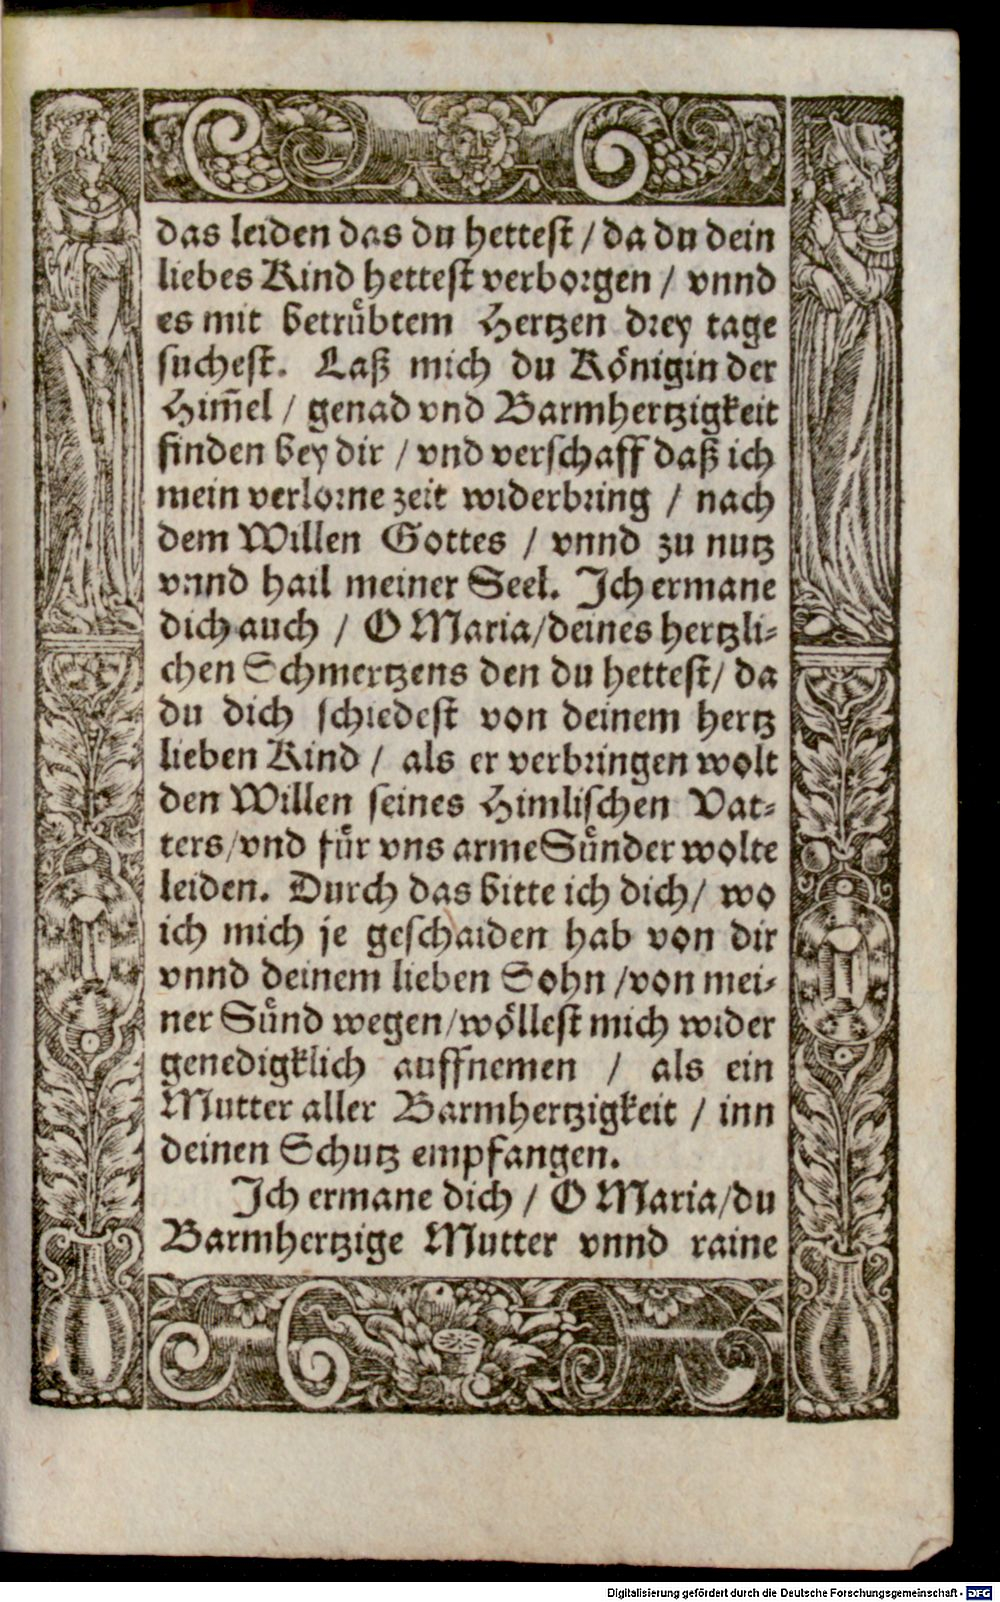 das leiden das du hettest / da du dein
liebes Kind hettest verborgen / vnnd
es mit betruͤbtem Hertzen drey tage
suchest. Laß mich du Koͤnigin der
Him̃el / genad vnd Barmhertzigkeit
finden bey dir / vnd verschaff daß ich
mein verlorne zeit widerbring / nach
dem Willen Gottes / vnnd zu nutz
vnnd hail meiner Seel. Ich ermane
dich auch / O Maria/deines hertzli-
chen Schmertzens den du hettest/ da
du dich schiedest von deinem hertz
lieben Kind / als er verbringen wolt
den Willen seines Himlischen Vat-
ters/vnd fuͤr vns arme Suͤnder wolte
leiden. Durch das bitte ich dich/ wo
ich mich je geschaiden hab von dir
vnnd deinem lieben Sohn /von mei-
ner Suͤnd wegen/woͤllest mich wider
genedigklich auffnemen / als ein
Mutter aller Barmhertzigkeit / inn
deinen Schutz empfangen.
Ich ermane dich / O Maria/du
Barmhertzige Mutter vnnd raine
Digitalisierung gefördert durch die Deutsche Forschungsgemeinschaft - DFG